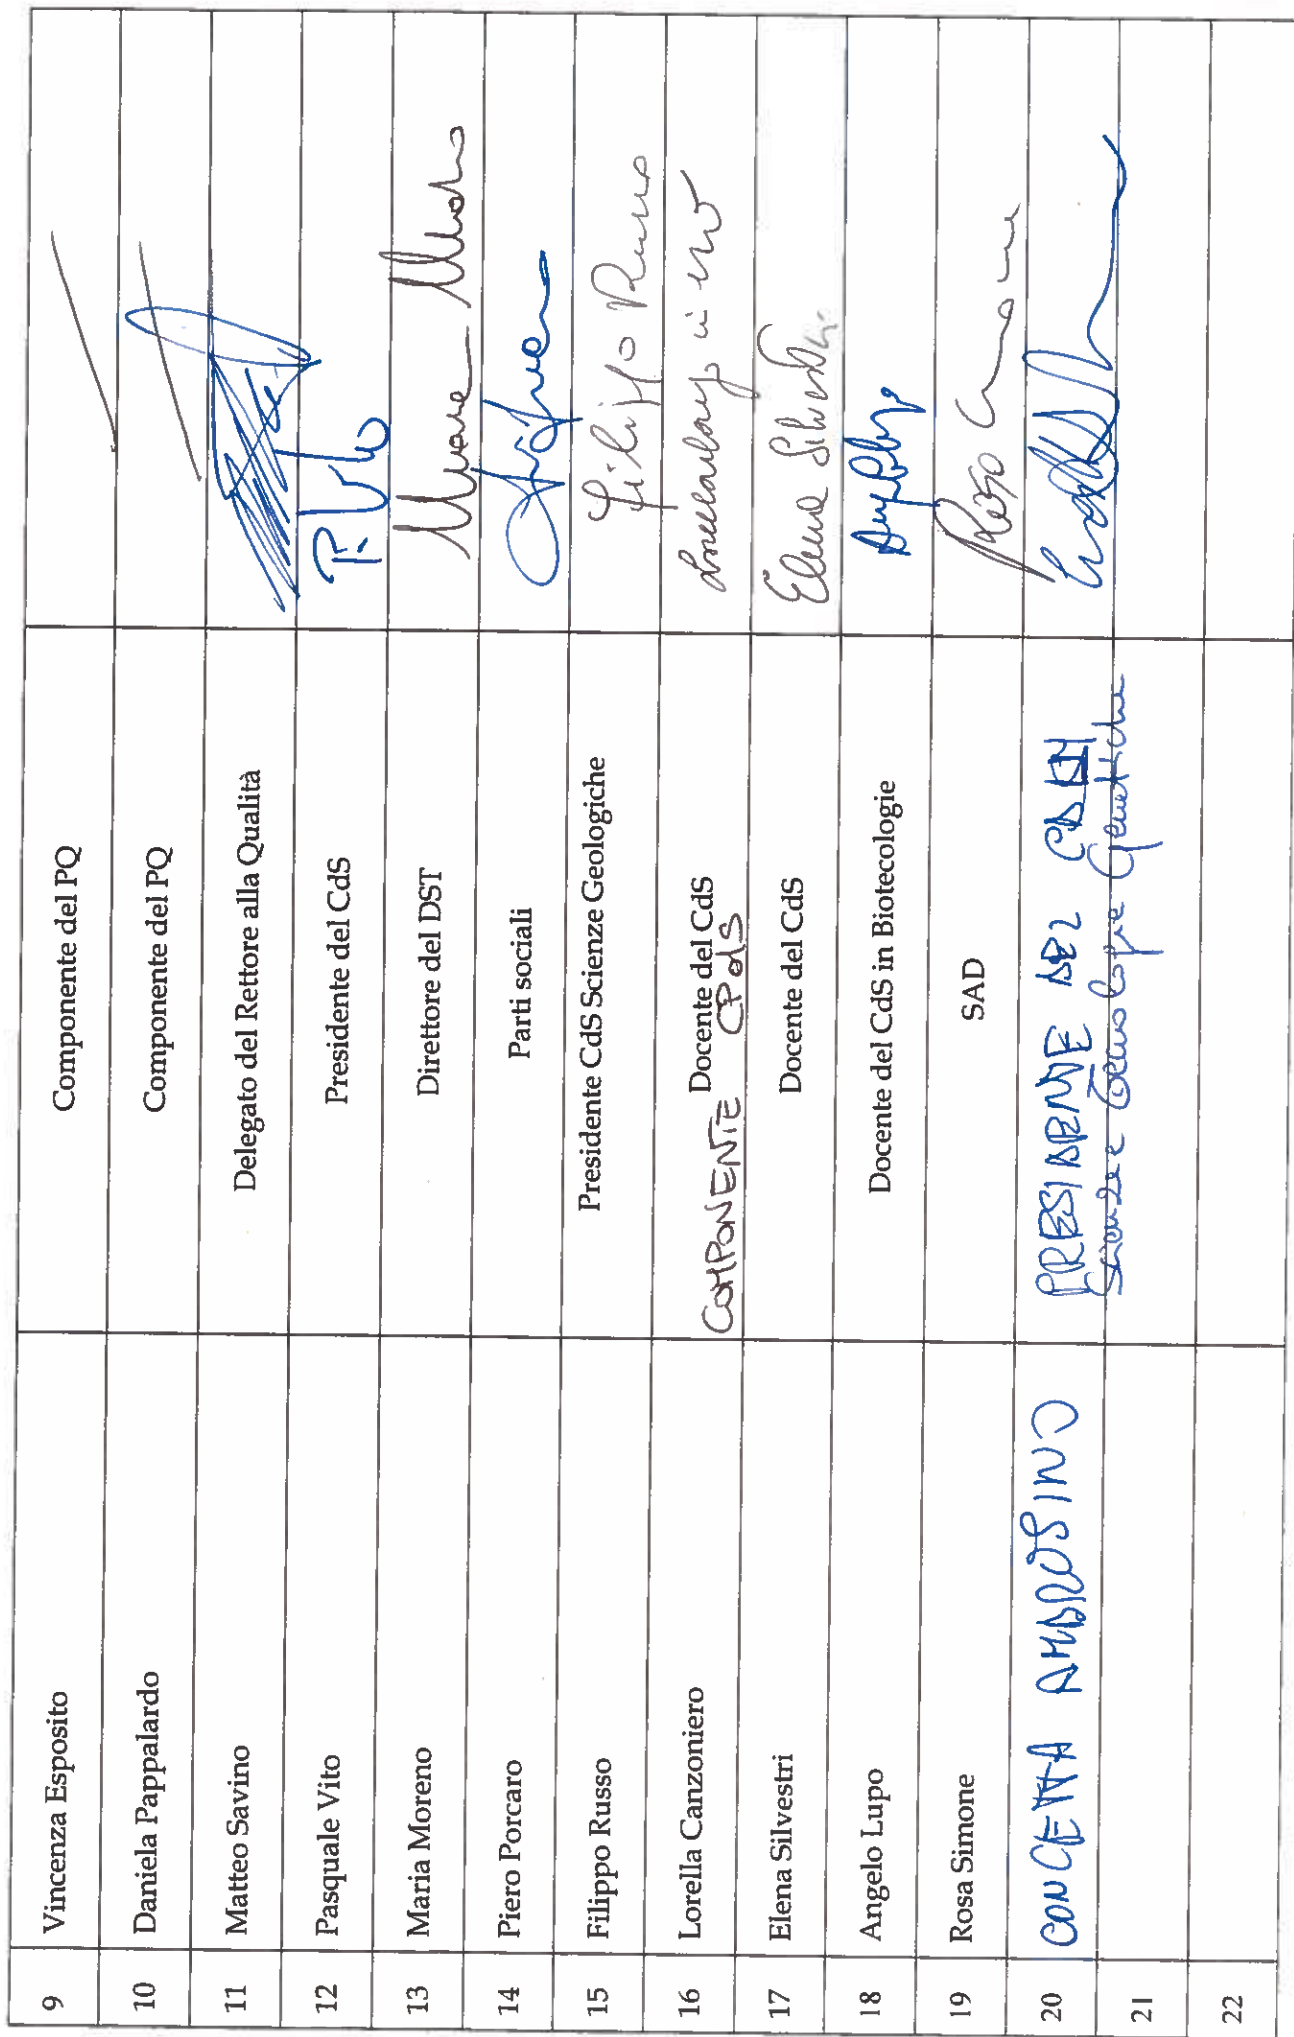 9 Vincenza Esposito Componente del PQ
10 Daniela Pappalardo Componente del PQ
11 Matteo Savino Delegato del Rettore alla Qualità
12 Pasquale Vito Presidente del CdS P. Vito
13 Maria Moreno Direttore del DST
14 Piero Porcaro Parti sociali
15 Filippo Russo Presidente CdS Scienze Geologiche Filippo Russo
16 Lorella Canzoniero Docente del CdS
COMPONENTE CPdS
17 Elena Silvestri Docente del CdS Elena Silvestri
18 Angelo Lupo Docente del CdS in Biotecologie
19 Rosa Simone SAD
20 CONCETTA AMBROSINO PRESIDENTE DEL
Scienze e Tecnologie Genetiche
21
22